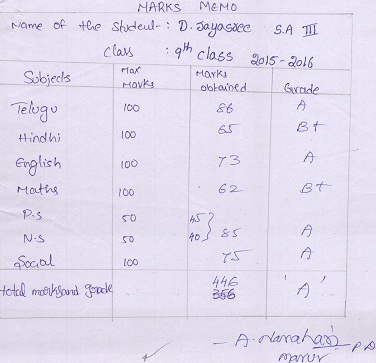 MARKS MEMO
Name of the Student :- D. Jayasree S.A III
Class : 9th class 2015-2016
Subjects Max Marks Marks obtained Grade
Telugu 100 86 A
Hindhi 100 65 B+
English 100 73 A
Maths 100 62 B+
P.S 50 45
N.S 50 40 } 85 A
Social 100 75 A
total marks and grade 446 'A'
356
- A. Manahari P.D